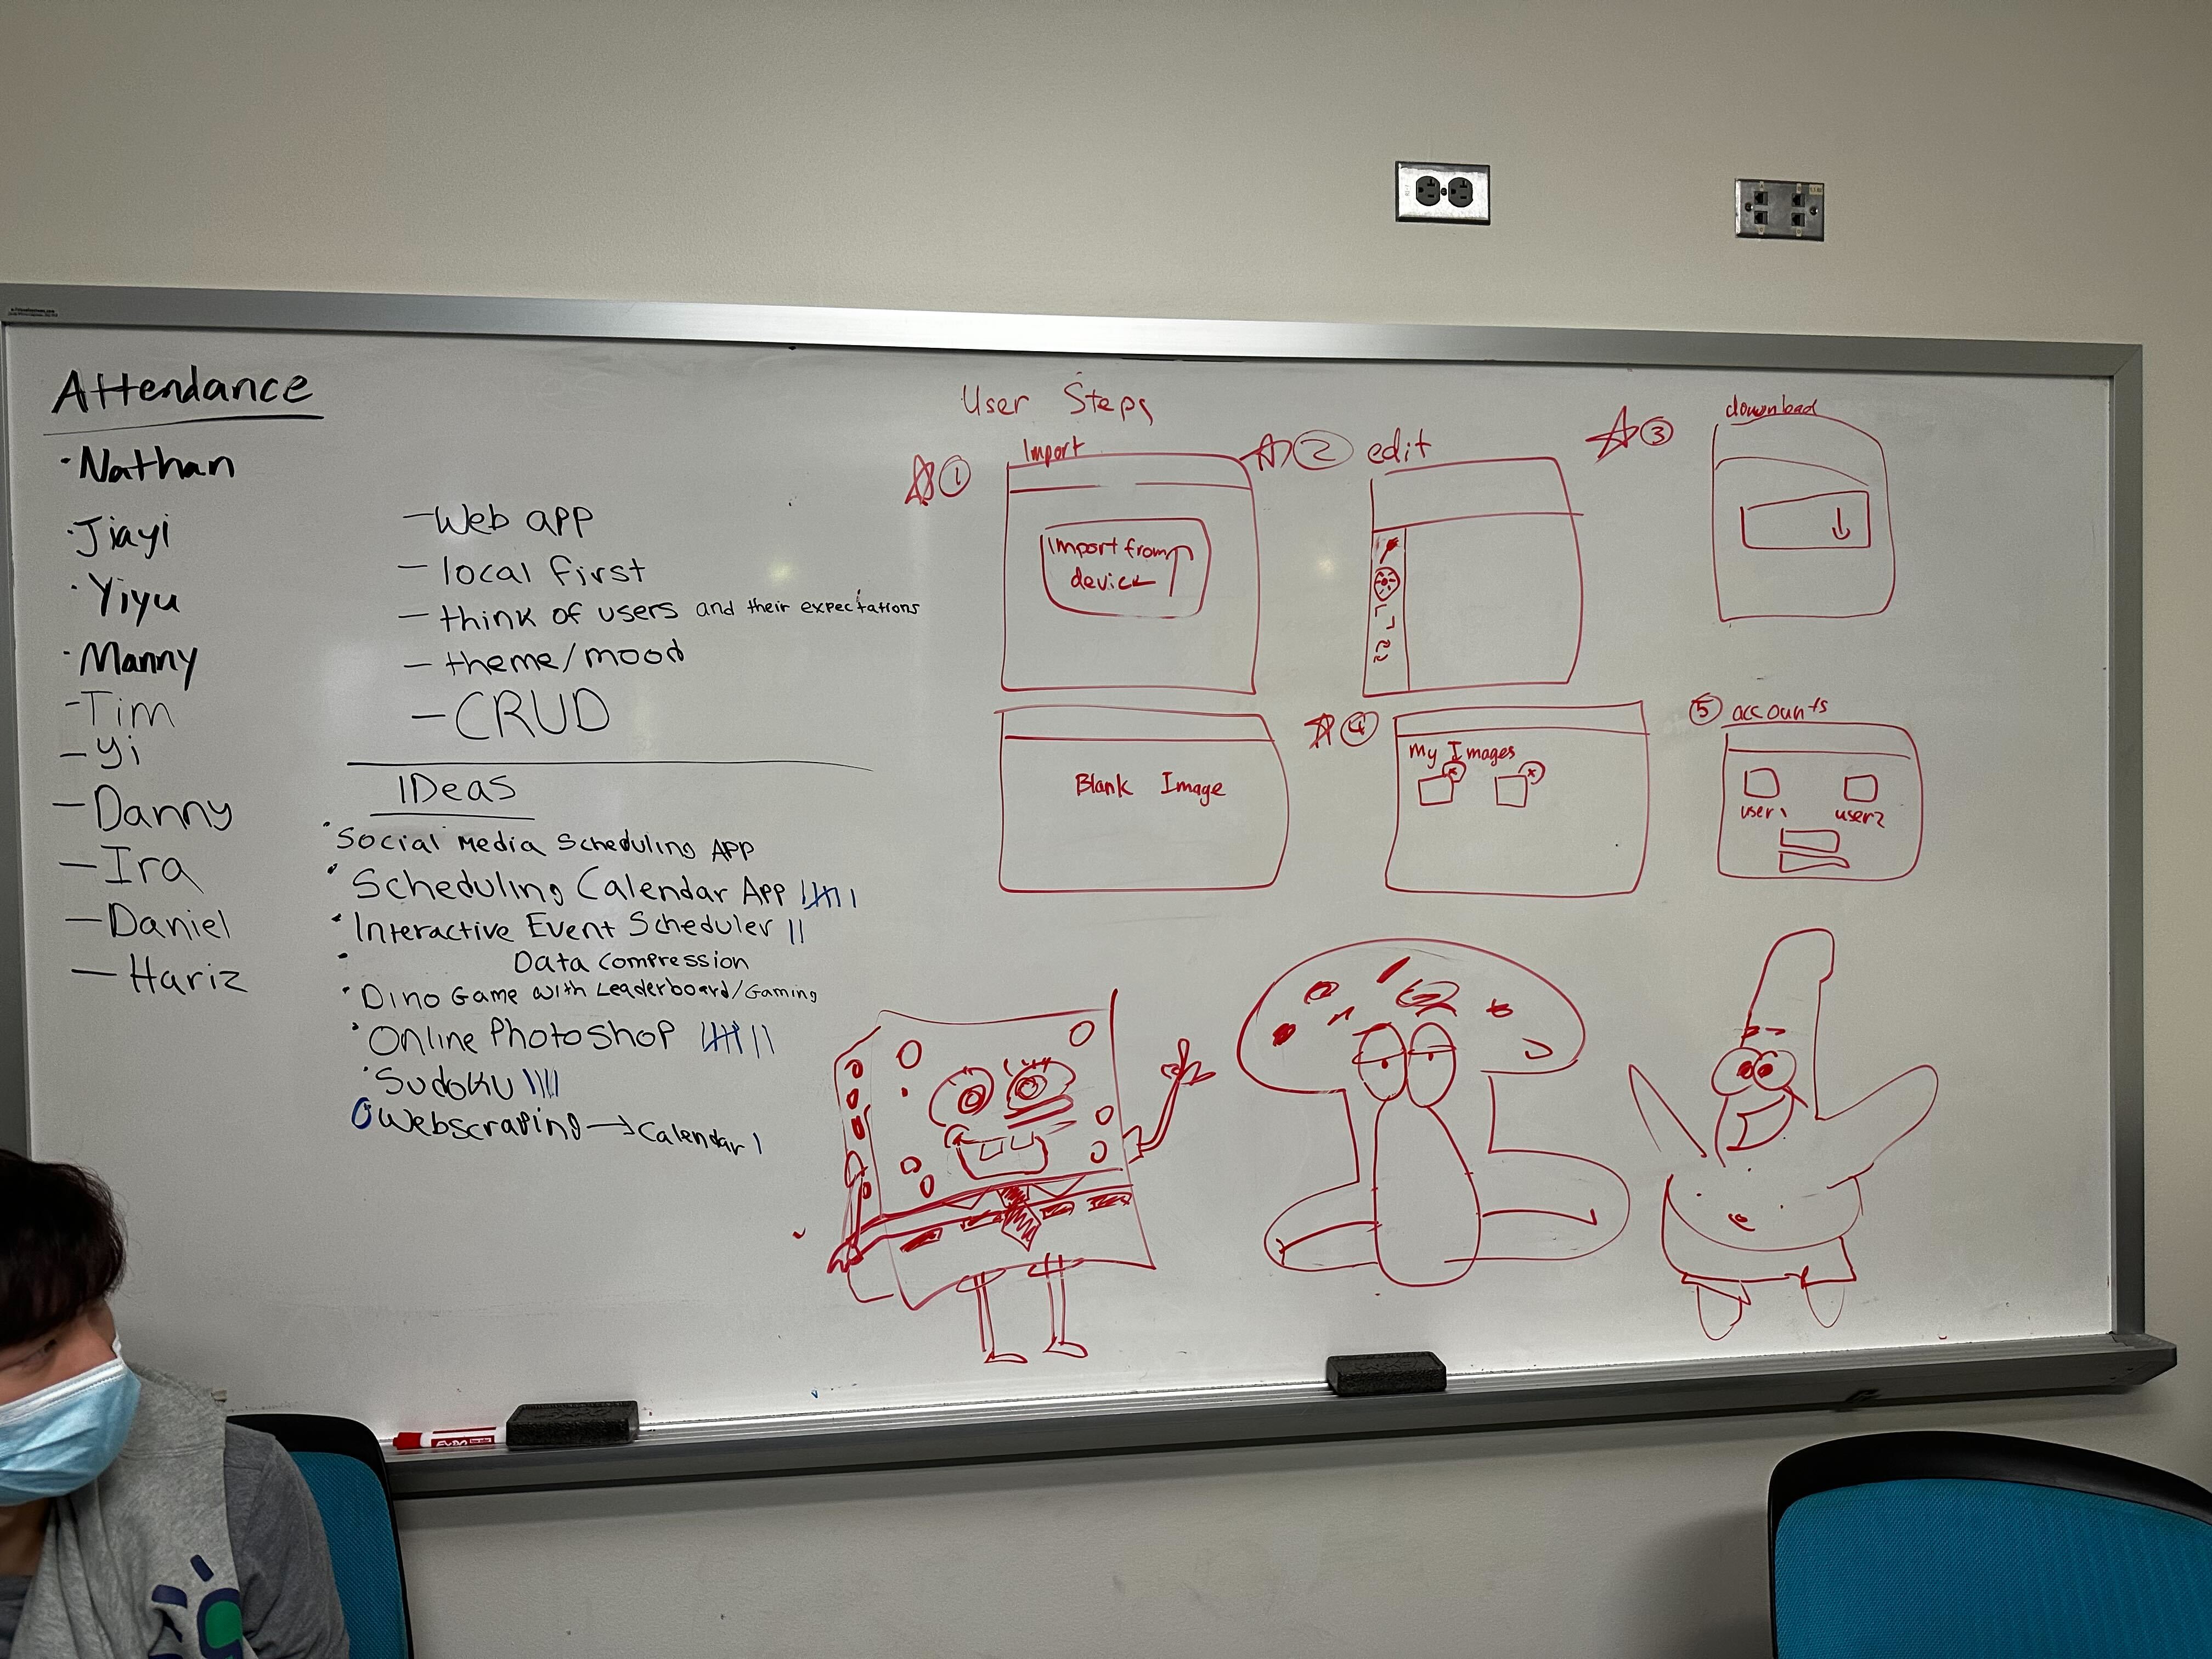 Attendance
· Nathan
· Jiayi
· Yiyu
· Manny
- Tim
- Yi
- Danny
- Ira
- Daniel
- Hariz
- Web app
- local first
- think of users and their expectations
- theme/mood
- CRUD
IDeas
· Social Media Scheduling App
· Scheduling Calendar App
· Interactive Event Scheduler
· Data Compression
· Dino Game with Leaderboard/Gaming
· Online Photoshop
· Sudoku
Webscraping → Calendar
User Steps
1 Import
Import from
device
Blank Image
2 edit
3 download
4
My Images
x x
5 accounts
user1 user2
EXPO